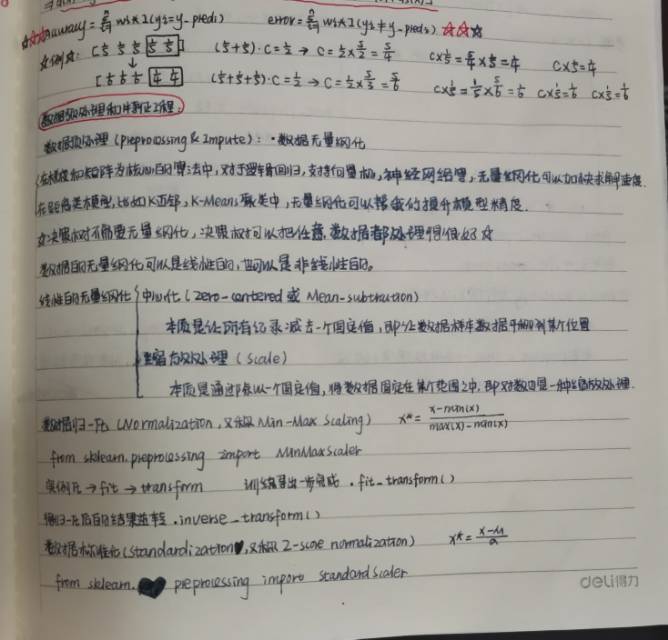 ☆☆☆ accuracy = Σ wi*I(yi=y_predi) error = Σ wi*I(yi≠y_predi) ☆☆☆
☆例☆: [1/5 1/5 1/5 1/5 1/5] (1/5+1/5)·C=1/2 → C=1/2×5/2=5/4 C×1/5=5/4×1/5=1/4 C×1/5=1/4
↓
[1/5 1/5 1/5 1/4 1/4] (1/5+1/5+1/5)·C=1/2 → C=1/2×5/3=5/6 C×1/5=1/5×5/6=1/6 C×1/5=1/6 C×1/5=1/6
数据预处理和特征工程:
数据预处理 (Preprocessing & Impute): ·数据无量纲化
在梯度和矩阵为核心的算法中,对于逻辑回归,支持向量机,神经网络里,无量纲化可以加快求解速度.
在距离类模型,比如K近邻,K-Means聚类中,无量纲化可以帮我们提升模型精度.
☆决策树不需要无量纲化,决策树可以把任意数据都处理得很好☆
数据的无量纲化可以是线性的,也可以是非线性的。
线性的无量纲化 中心化 (Zero-centered 或 Mean-subtraction)
本质是让所有记录减去一个固定值,即让数据样本数据平移到某个位置
缩放处理 (Scale)
本质是通过除以一个固定值,将数据固定在某个范围之中,取对数也是一种缩放处理.
数据归一化 (Normalization, 又称 Min-Max Scaling) x* = (x-min(x))/(max(x)-min(x))
from sklearn.preprocessing import MinMaxScaler
实例化 → fit → transform 训练导出一步完成 .fit_transform()
归一化后的结果逆转 .inverse_transform()
数据标准化 (Standardization, 又称 Z-score normalization) x* = (x-μ)/σ
from sklearn. preprocessing import StandardScaler
deli得力